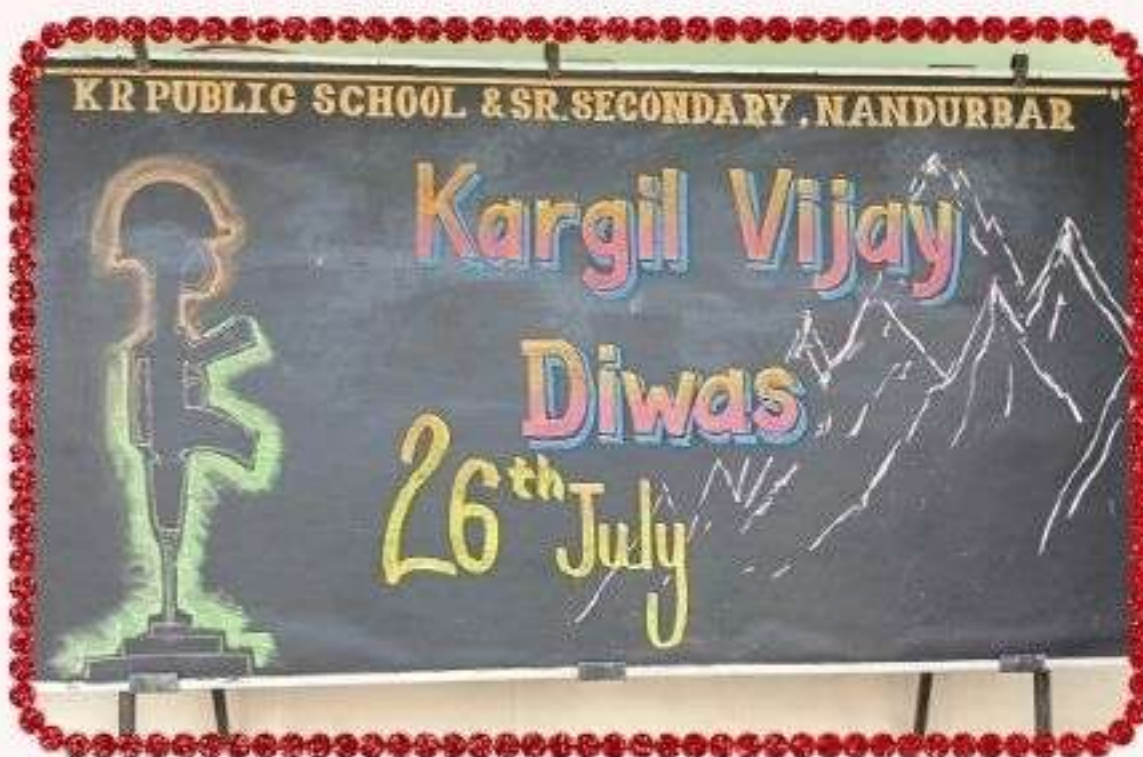 K R PUBLIC SCHOOL & SR. SECONDARY, NANDURBAR
Kargil Vijay
Diwas
26th July